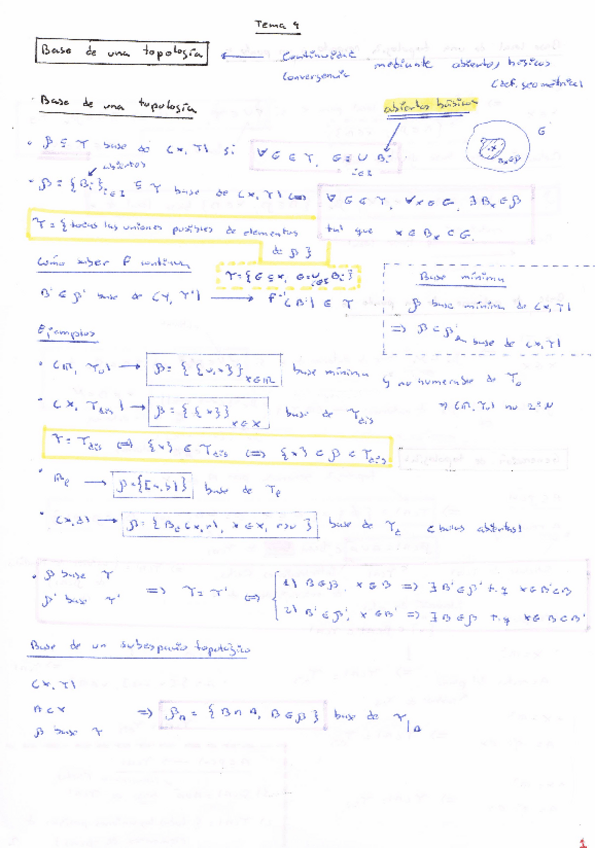 Tema 4
Base de una topología ← Continuidad
Convergencia
mediante abiertos básicos
(def. geométrica)
· Base de una topología
abiertos básicos
• β ⊆ τ base de (X, τ) si ∀ G ∈ τ, G = ∪ Bi
i∈I
G
abiertos
• β = {Bi}i∈I ⊆ τ base de (X, τ) ⟺ ∀ G ∈ τ, ∀x ∈ G, ∃ Bx ∈ β
tal que x ∈ Bx ⊂ G.
τ = {todas las uniones posibles de elementos
de β}
Cómo saber f continua
τ = {G ⊆ X, G = ∪i∈I Bi}
B' ∈ β' base de (Y, τ') → f⁻¹(B') ∈ τ
Base mínima
β base mínima de (X, τ)
⟹ β ⊂ β'
base de (X, τ)
Ejemplos
• (ℝ, τ0) → β = {{0, x}}x∈ℝ base mínima y no numerable de τ0
⟹ (ℝ, τ0) no 2º N
• (X, τdis) → β = {{x}}x∈X base de τdis
τ = τdis ⟺ {x} ∈ τdis ⟺ {x} ∈ β ⊂ τdis
• ℝℓ → β = {[a, b)} base de τℓ
• (X, d) → β = {Bd(x, r), x ∈ X, r > 0} base de τd (bolas abiertas)
• β base τ
β' base τ'
⟹ τ = τ' ⟺
1) B ∈ β, x ∈ B ⟹ ∃ B' ∈ β' t.q x ∈ B' ⊂ B
2) B' ∈ β', x ∈ B' ⟹ ∃ B ∈ β t.q x ∈ B ⊂ B'
Base de un subespacio topológico
(X, τ)
A ⊂ X
β base τ
⟹ βA = {B ∩ A, B ∈ β} base de τ|A
1